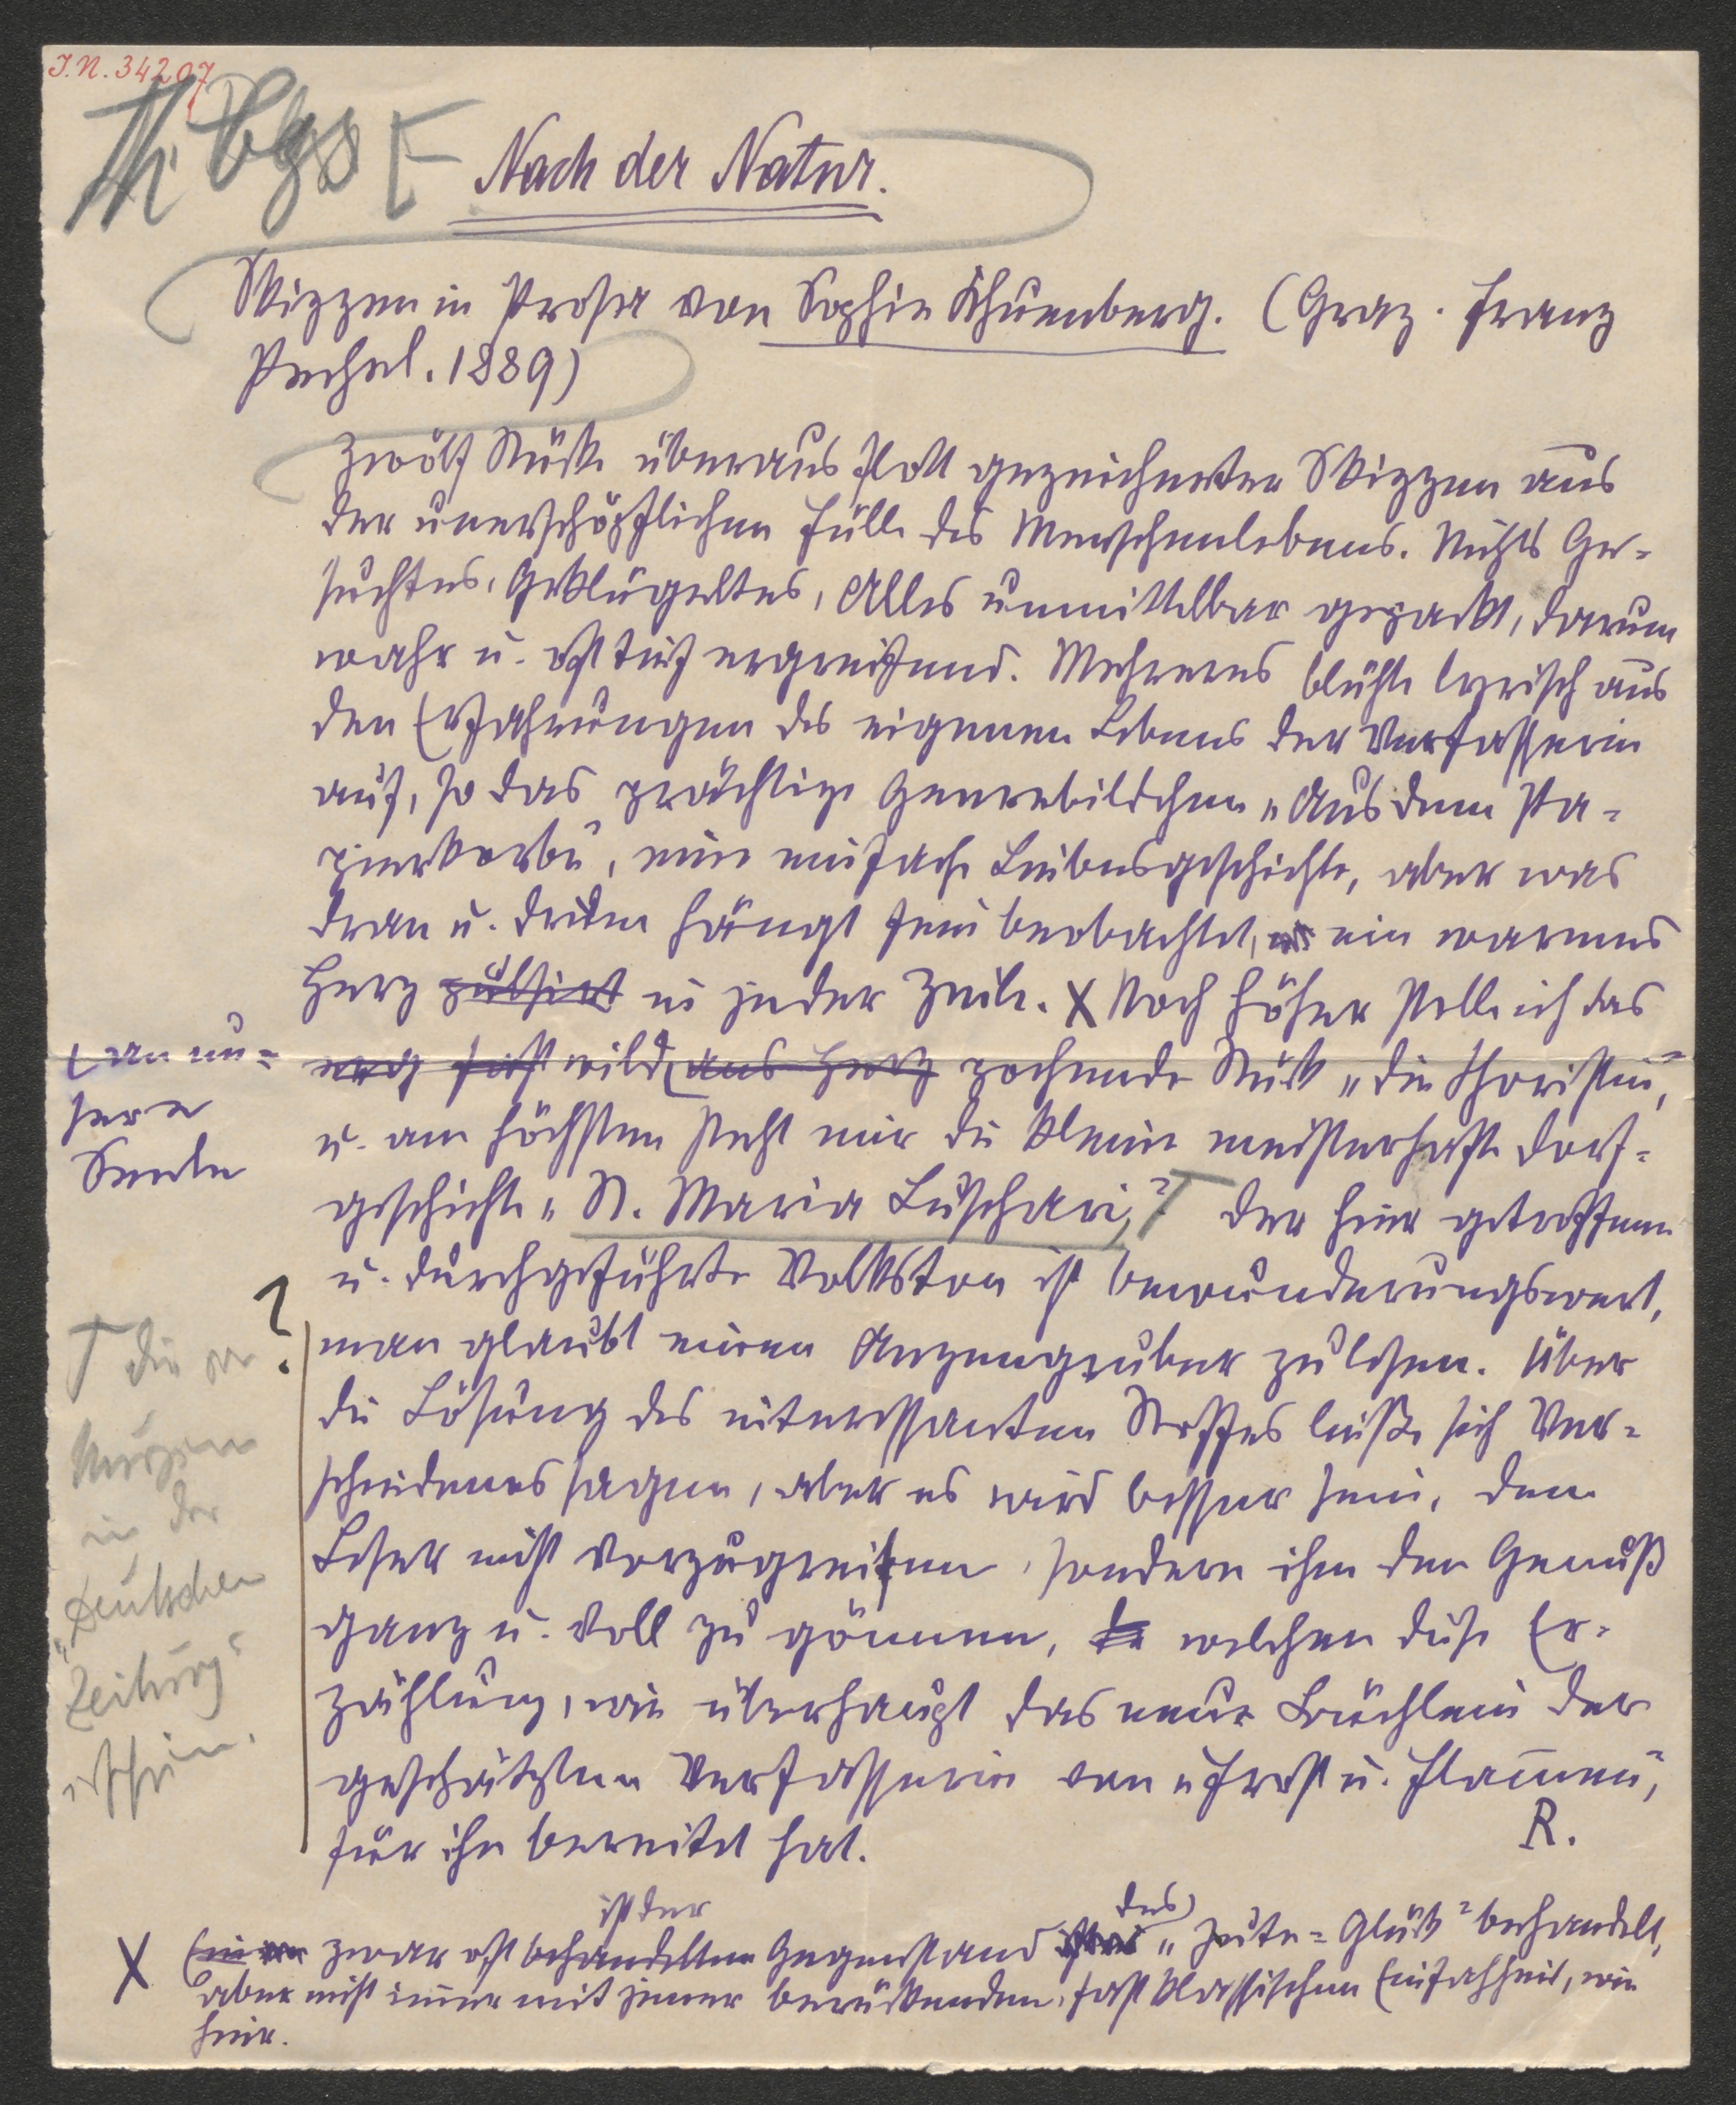 J.N. 34207
Nach der Natur.
Skizzen in Prosa von Sophie Khuenberg. (Graz. Franz
Pechel. 1889)
Zwölf Stück überaus flott gezeichneter Skizzen aus
der unerschöpflichen Fülle des Menschenlebens. Nichts Ge-
suchtes, Geklügeltes, Alles unmittelbar gepackt, darum
wahr u. oft tief ergreifend. Mehreres blühte lyrisch aus
den Erfahrungen des eigenen Lebens der Verfasserin
auf, so das prächtige Genrebildchen „Aus dem Pa-
pierkorbe", eine einfache Liebesgeschichte, aber was
dran u. drum hängt fein beobachtet, ein warmes
Herz pulsirt in jeder Zeile. X Noch höher stelle ich das
wild ans Herz pochende Stück „die Choristin",
(an un-
sere
Seele
u. am höchsten steht mir die kleine meisterhafte Dorf-
geschichte „St. Maria Luschari," Der hier getroffene
u. durchgeführte Volkston ist bewunderungswert,
man glaubt einen Anzengruber zu lesen. Über
die Lösung des interessanten Stoffes ließe sich Ver-
schiedenes sagen, aber es wird besser sein, dem
Leser nicht vorzugreifen, sondern ihm den Genuß
ganz u. voll zu gönnen, welchen diese Er-
zählung, wie überhaupt das neue Büchlein der
geschätzten Verfasserin von „Frost u. Flammen",
für ihn bereitet hat.
R.
?
die vor
Kurzem
in der
„Deutschen
Zeitung"
erschien.
X zwar oft behandelter Gegenstand „Jute-Glück" behandelt,
ist der
des
aber nicht immer mit jener berückenden, fast klassischen Einfachheit, wie
hier.